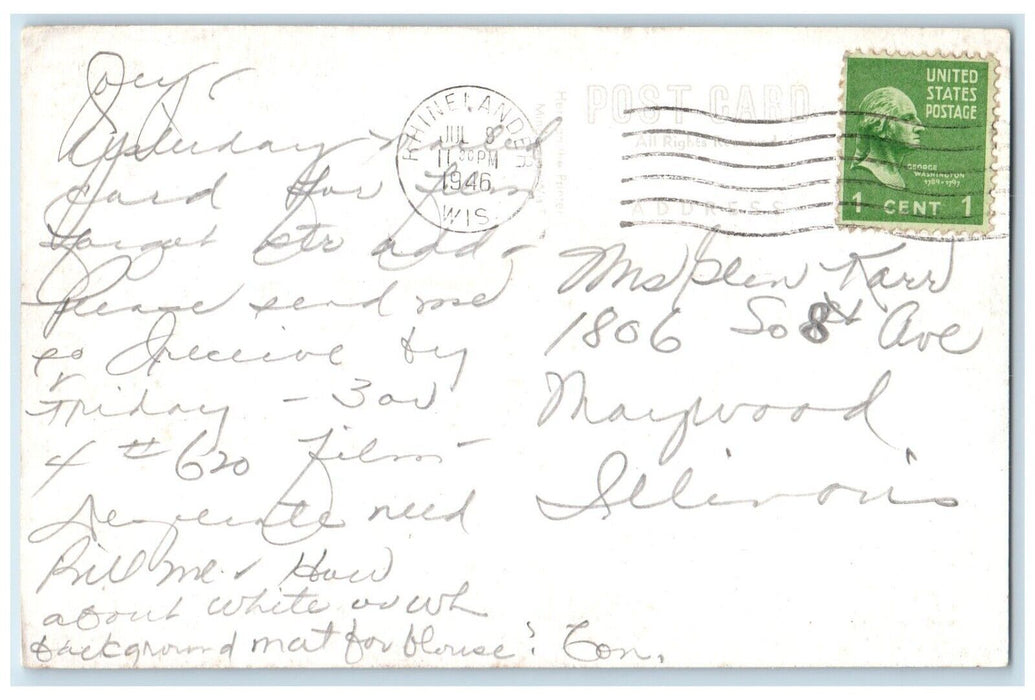 Yesterday
card for
forgot str add -
Please send me
so I receive by
Friday - 3 or
4 # 620 films
desperate need
Bill me - How
about white
background mat for blouse?
RHINELANDER
JUL 8
11 30 PM
1946
WIS.
POST CARD
All Rights Reserved
ADDRESS
UNITED
STATES
POSTAGE
GEORGE
WASHINGTON
1789-1797
1 CENT 1
Mrs Glen Karr
1806 So 8th Ave
Maywood
Illinois